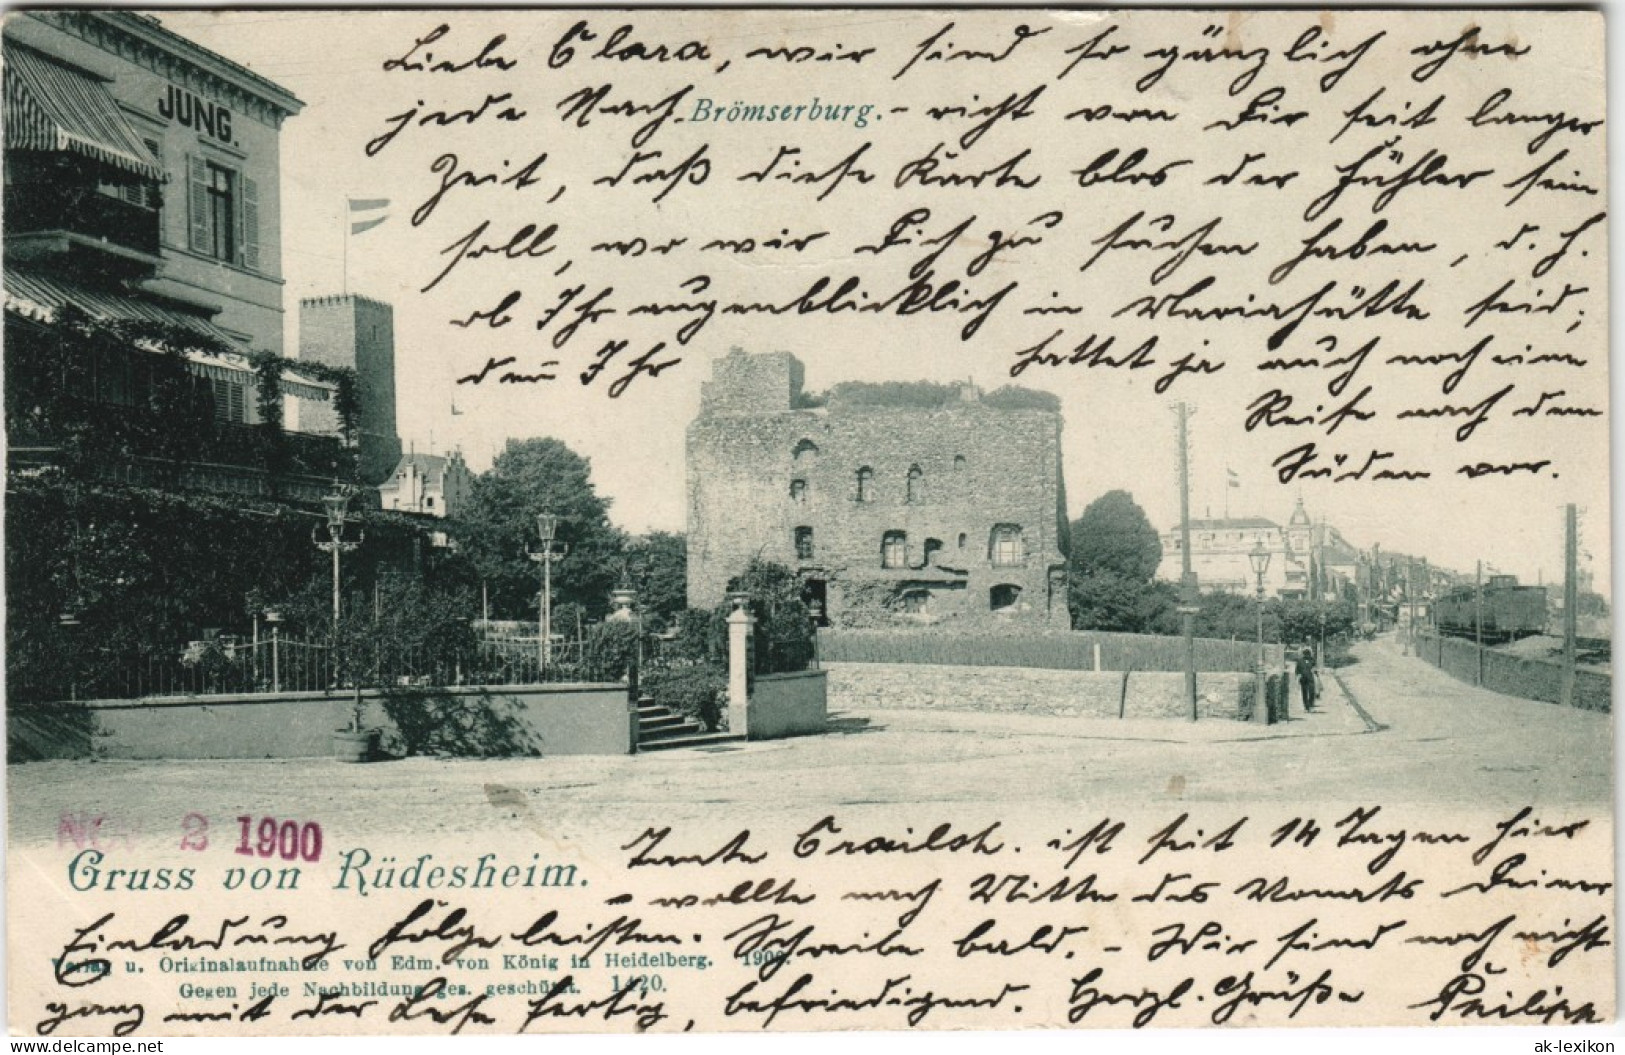 JUNG.
Liebe Clara, wir sind so gänzlich ohne
jede Nach-richt von Dir seit langer
Brömserburg.
Zeit, daß diese Karte blos der Fühler sein
soll, wo wir Dich zu suchen haben, d. h.
ob Ihr augenblicklich in Mariahütte seid;
den̄ Ihr hattet ja auch noch eine
Reise nach dem
Süden vor.
Nov 2 1900
Gruss von Rüdesheim.
Tante ist seit 14 Tagen hier
- wollte nach Mitte des Monats Deiner
Einladung Folge leisten. Schreibe bald. - Wir sind noch nicht
Verlag u. Originalaufnahme von Edm. von König in Heidelberg.
Gegen jede Nachbildung ges. geschützt. 1420.
ganz mit der Lese fertig, befriedigend. Herzl. Grüße Philipp
ak-ansichtskarten.de
ak-lexikon